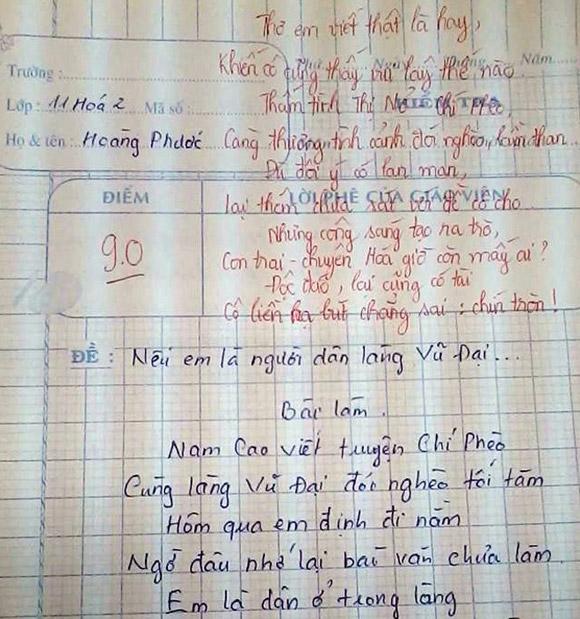 Thơ em viết thật là hay,
Khiến cô cũng thấy thế nào
Năm
Trường :
Thấm tình Thị Nở Chí Phèo
Lớp: 11 Hoá 2 Mã số :
Họ & tên : Hoàng Phước
Càng thương tình cảnh đói nghèo, lầm than
Dù đôi ý có lan man,
ĐIỂM
LỜI PHÊ CỦA GIÁO VIÊN
lại thêm chưa sát với đề cô cho
Nhưng công sáng tạo ra trò,
9.0
Con trai - chuyên Hóa giờ còn mấy ai ?
Độc đáo, lại cũng có tài
Cô liền hạ bút chẳng sai : chín tròn !
ĐỀ : Nếu em là người dân làng Vũ Đại...
Bài làm.
Nam Cao viết truyện Chí Phèo
Cùng làng Vũ Đại đói nghèo tối tăm
Hôm qua em định đi nằm
Ngờ đâu nhớ lại bài văn chưa làm.
Em là dân ở trong làng